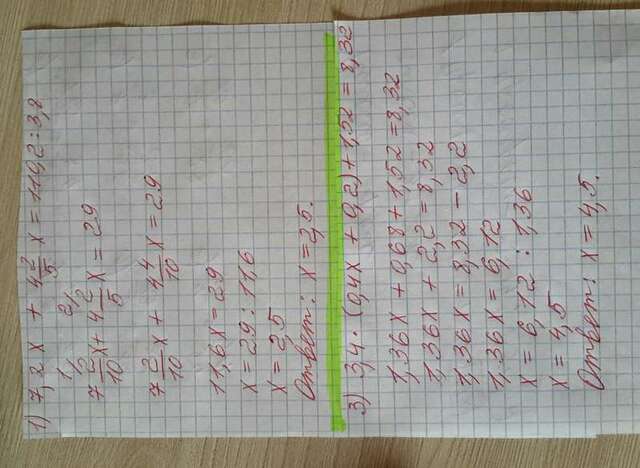 1) 7,2x + 4 2/5 x = 110,2 : 3,8
7 2/10 x + 4 2/5 x = 29
7 2/10 x + 4 4/10 x = 29
11,6x = 29
x = 29 : 11,6
x = 2,5
Ответ: x = 2,5.
3) 3,4 · (0,4x + 0,2) + 1,52 = 8,32
1,36x + 0,68 + 1,52 = 8,32
1,36x + 2,2 = 8,32
1,36x = 8,32 - 2,2
1,36x = 6,12
x = 6,12 : 1,36
x = 4,5
Ответ: x = 4,5.